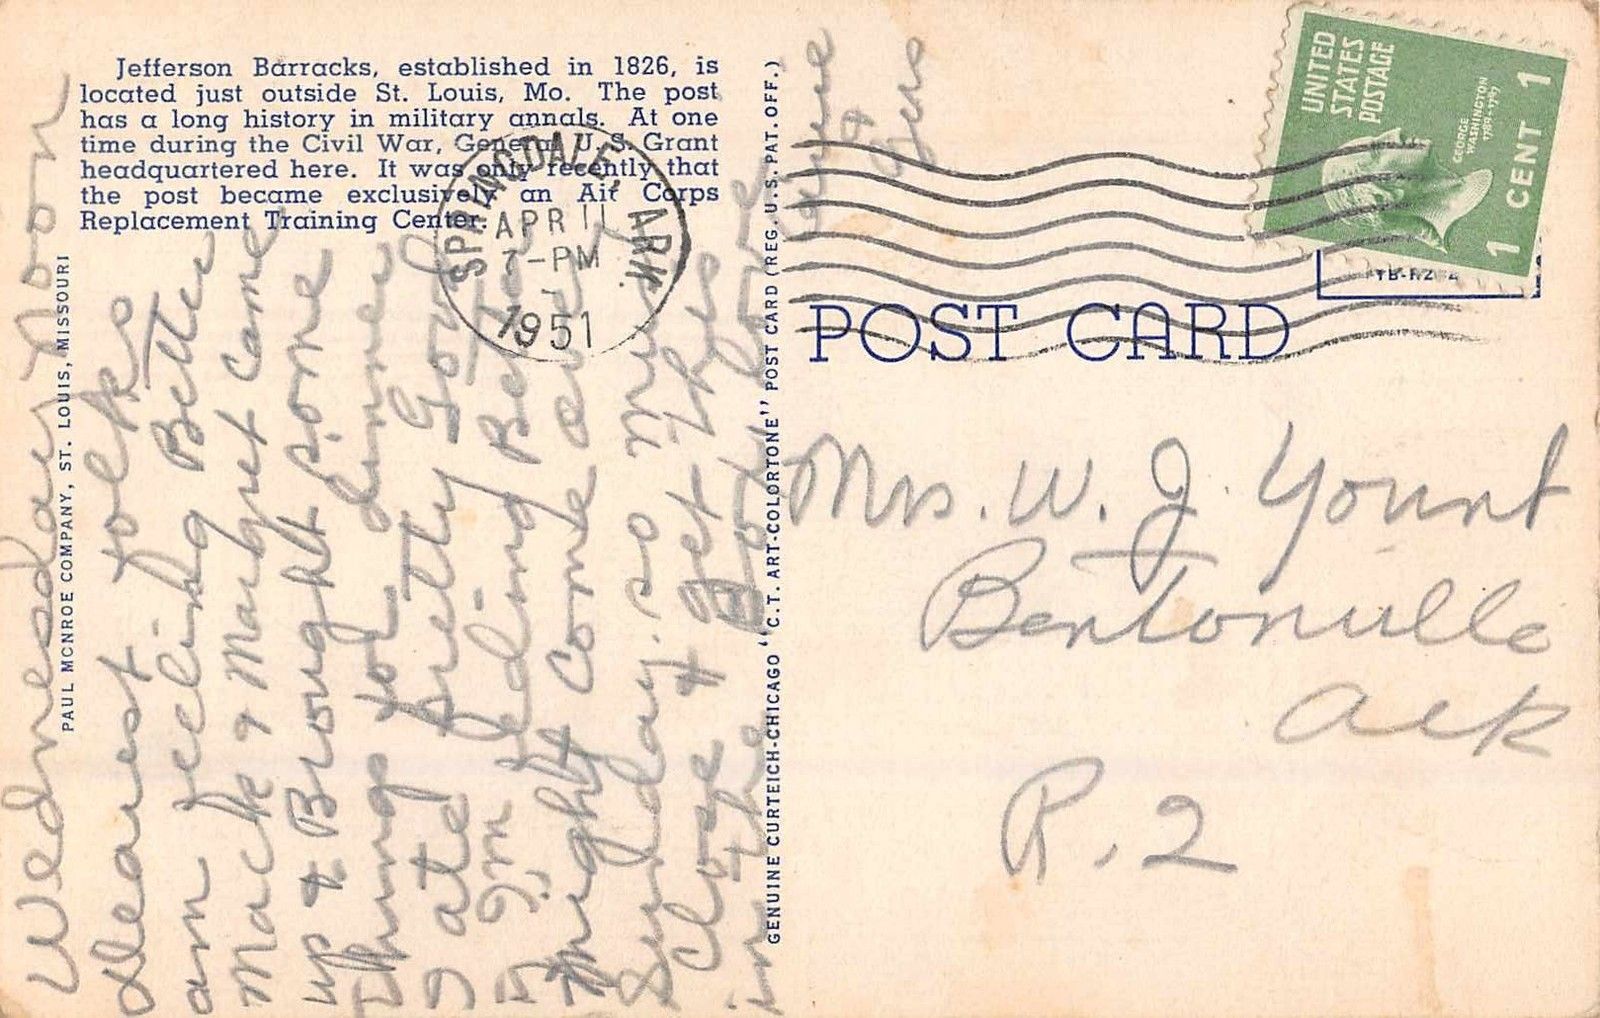 Jefferson Barracks, established in 1826, is
located just outside St. Louis, Mo. The post
has a long history in military annals. At one
time during the Civil War, General U. S. Grant
headquartered here. It was only recently that
the post became exclusively an Air Corps
Replacement Training Center.
PAUL MCNROE COMPANY, ST. LOUIS, MISSOURI
Wednesday noon
dearest folks
am feeling Better
Mack & Margret came
up & Brought some
things for dinner
I ate pretty Good
I'm feeling Better
might come over
Sunday. so must
Close & get this
in the Box love
&
Gus
GENUINE CURTEICH-CHICAGO "C.T. ART-COLORTONE" POST CARD (REG. U.S. PAT. OFF.)
SPRINGDALE, ARK.
APR 11
7-PM
1951
UNITED
STATES
POSTAGE
GEORGE
WASHINGTON
1789-1797
1 CENT 1
POST CARD
Mrs. W. J. Yount
Bentonville
Ark
R. 2